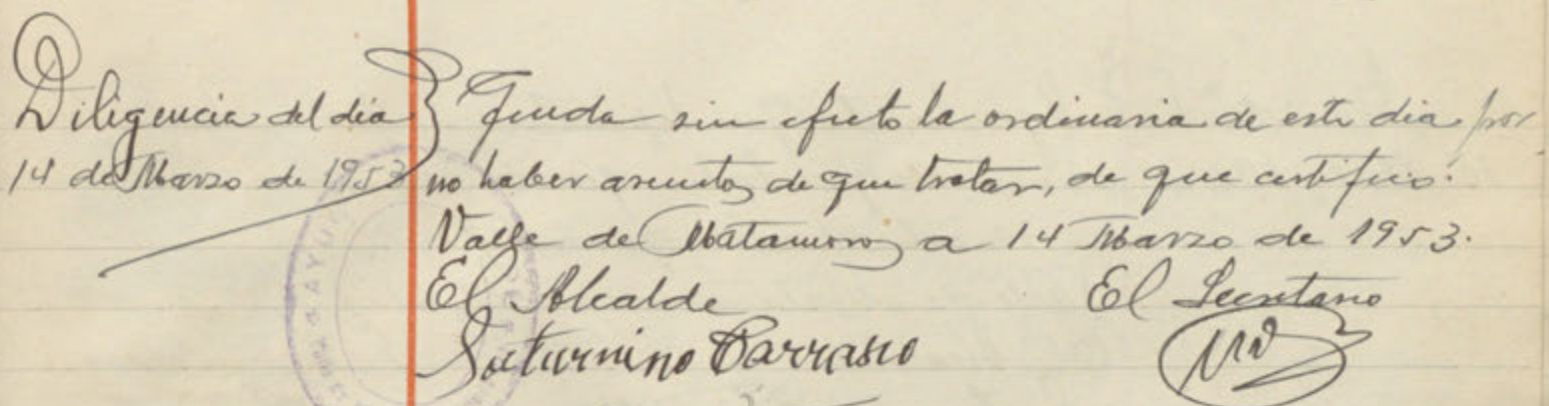 Diligencia del día
14 de Marzo de 1953
Queda sin efecto la ordinaria de este dia por
no haber asuntos de que tratar, de que certifico.
Valle de Matamoros a 14 Marzo de 1953.
El Alcalde
El Secretario
Saturnino Carrasco
AYU